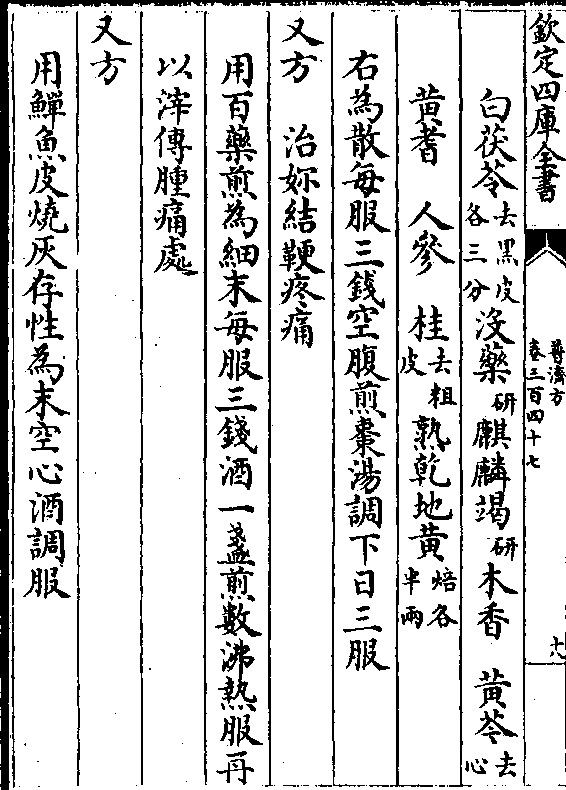 欽定四庫全書
普濟方
卷三百四十七
十八
白茯苓去黑皮各三分 沒藥研 麒麟竭研 木香 黃芩去心
黃耆 人參 桂去粗皮 熟乾地黃焙各半兩
右為散每服三錢空腹煎棗湯調下日三服
又方 治妳結鞕疼痛
用百藥煎為細末每服三錢酒一盞煎數沸熱服再
以滓傅腫痛處
又方
用鱓魚皮燒灰存性為末空心酒調服